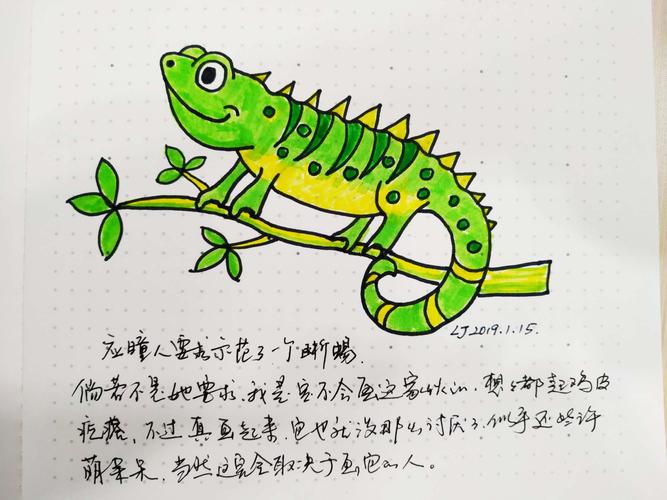 LJ 2019.1.15.
应瞳人要求示范了一个晰蜴.
倘若不是她要求,我是定不会画这家伙的,想想都起鸡皮
疙瘩,不过真画起来,它也就没那么讨厌了,似乎还些许
萌呆呆,当然这完全取决于画它的人。